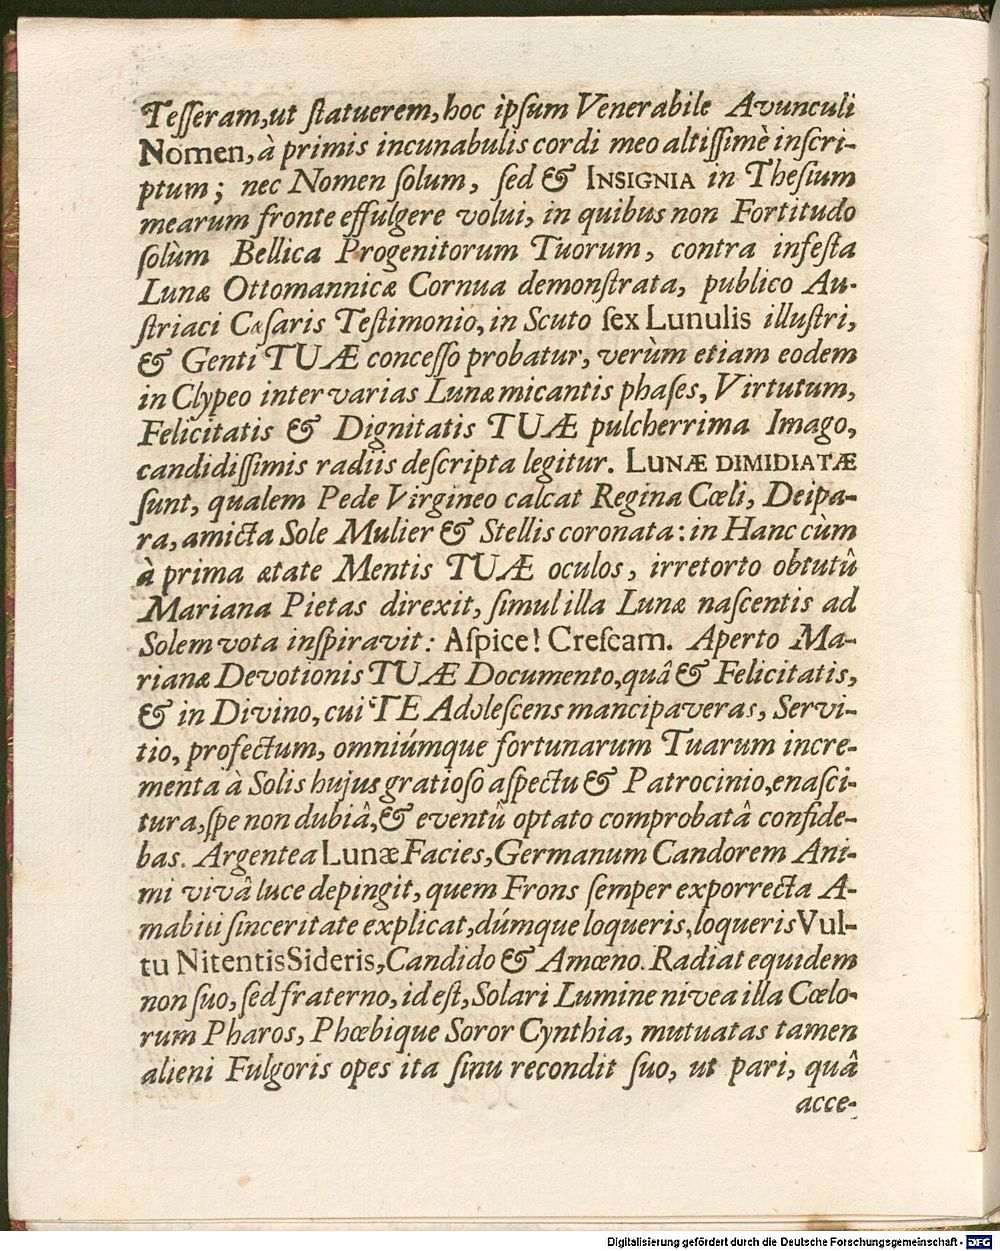 Teſſeram, ut ſtatuerem, hoc ipſum Venerabile Avunculi
Nomen, à primis incunabulis cordi meo altiſſimè inſcri-
ptum; nec Nomen ſolum, ſed & INSIGNIA in Theſium
mearum fronte effulgere volui, in quibus non Fortitudo
ſolùm Bellica Progenitorum Tuorum, contra infeſta
Lunæ Ottomannicæ Cornua demonſtrata, publico Au-
ſtriaci Cæſaris Teſtimonio, in Scuto ſex Lunulis illuſtri,
& Genti TUÆ conceſſo probatur, verùm etiam eodem
in Clypeo inter varias Lunæ micantis phaſes, Virtutum,
Felicitatis & Dignitatis TUÆ pulcherrima Imago,
candidiſſimis radiis deſcripta legitur. LUNÆ DIMIDIATÆ
ſunt, qualem Pede Virgineo calcat Regina Cœli, Deipa-
ra, amicta Sole Mulier & Stellis coronata: in Hanc cùm
à prima ætate Mentis TUÆ oculos, irretorto obtutû
Mariana Pietas direxit, ſimul illa Lunæ naſcentis ad
Solem vota inſpiravit: Aſpice! Creſcam. Aperto Ma-
rianæ Devotionis TUÆ Documento, quâ & Felicitatis,
& in Divino, cui TE Adoleſcens mancipaveras, Servi-
tio, profectum, omniúmque fortunarum Tuarum incre-
menta à Solis hujus gratioſo aſpectu & Patrocinio, enaſci-
tura, ſpe non dubiâ, & eventû optato comprobatâ confide-
bas. Argentea Lunæ Facies, Germanum Candorem Ani-
mi vivâ luce depingit, quem Frons ſemper exporrecta A-
mabili ſinceritate explicat, dúmque loqueris, loqueris Vul-
tu Nitentis Sideris, Candido & Amœno. Radiat equidem
non ſuo, ſed fraterno, id eſt, Solari Lumine nivea illa Cœlo-
rum Pharos, Phœbique Soror Cynthia, mutuatas tamen
alieni Fulgoris opes ita ſinu recondit ſuo, ut pari, quâ
acce-
Digitalisierung gefördert durch die Deutsche Forschungsgemeinschaft - DFG